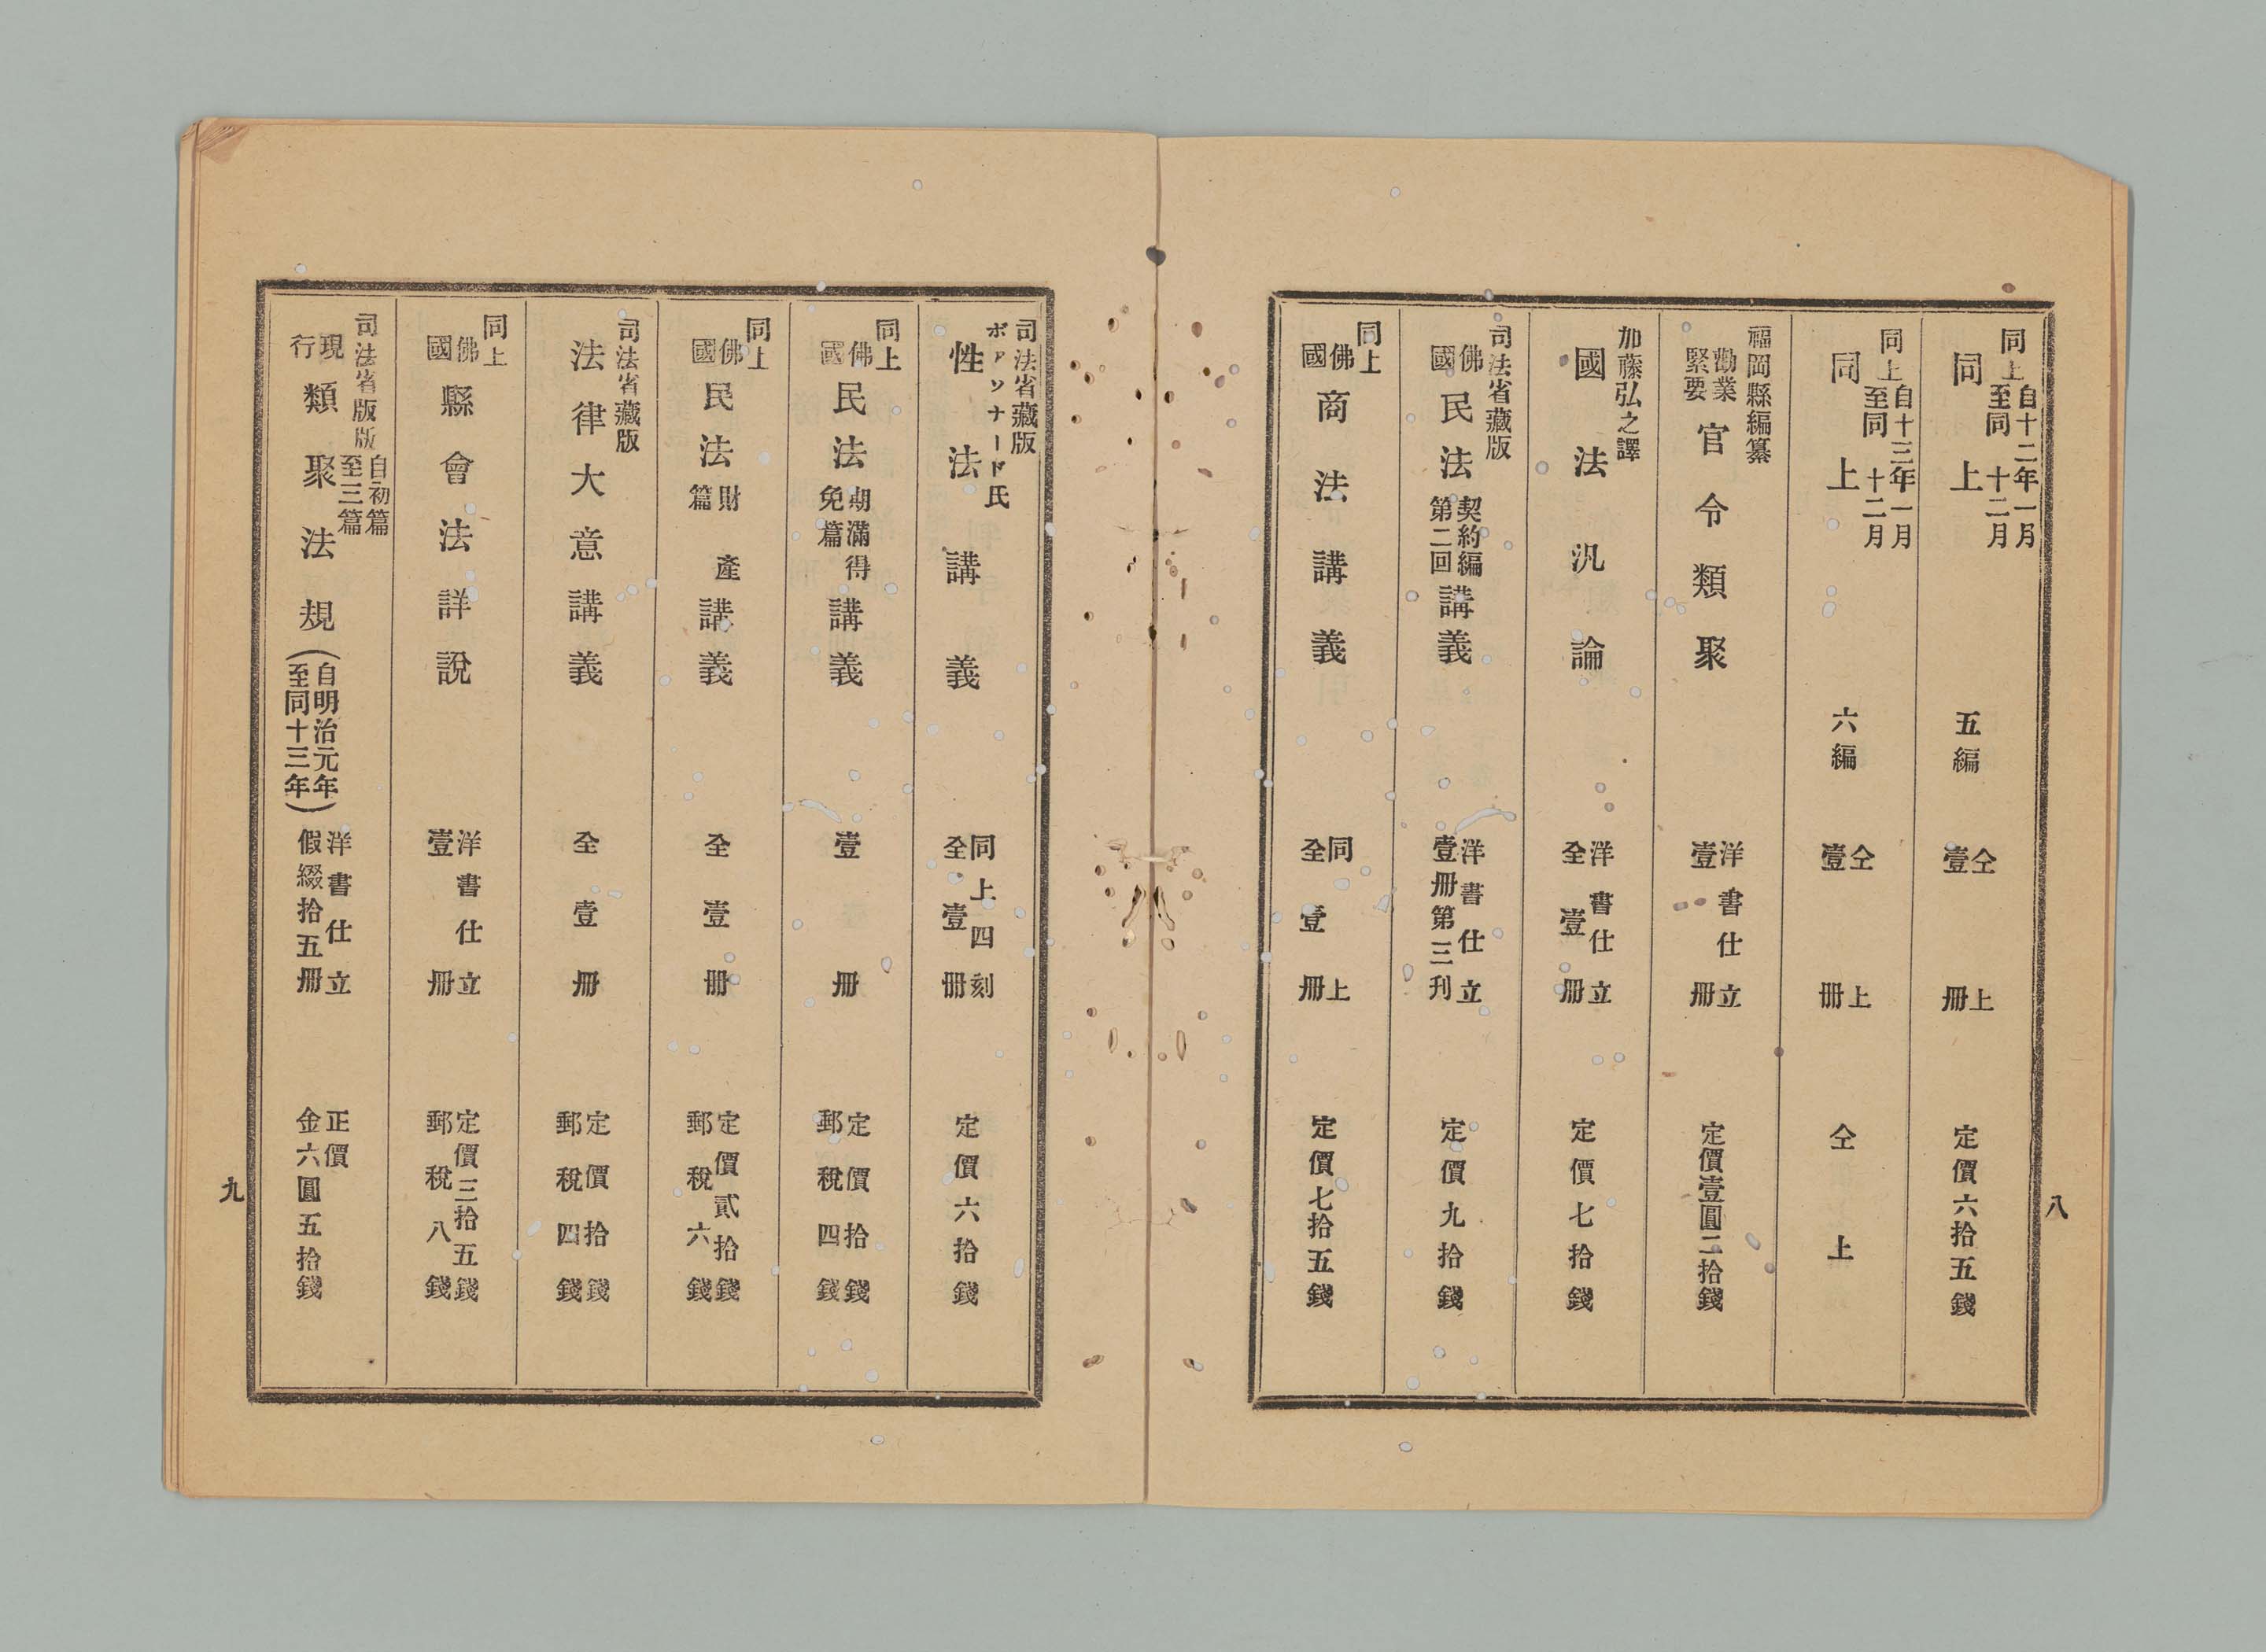 同上
自十二年一月
至同十二月
同上
五編
仝上
壹冊
定價六拾五錢
同上
自十三年一月
至同十二月
同上
六編
仝上
壹冊
仝上
福岡縣編纂
勸業
緊要
官令類聚
洋書仕立
壹冊
定價壹圓二拾錢
加藤弘之譯
國法汎論
洋書仕立
全壹冊
定價七拾錢
司法省藏版
佛國
民法
契約編
第二回
講義
洋書仕立
壹冊第三刊
定價九拾錢
同上
佛國
商法講義
同上
全壹冊
定價七拾五錢
八
司法省藏版
ボアソナード氏
性法講義
同上四刻
全壹冊
定價六拾錢
同上
佛國
民法
期滿得
免篇
講義
壹冊
定價拾錢
郵稅四錢
同上
佛國
民法
財產
篇
講義
全壹冊
定價貳拾錢
郵稅六錢
司法省藏版
法律大意講義
全壹冊
定價拾錢
郵稅四錢
同上
佛國
縣會法詳說
洋書仕立
壹冊
定價三拾五錢
郵稅八錢
司法省版版
自初篇
至三篇
現行
類聚法規
(自明治元年
至同十三年)
洋書仕立
假綴拾五冊
正價
金六圓五拾錢
九